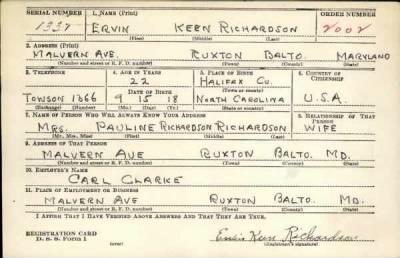 SERIAL NUMBER 1. NAME (Print) ORDER NUMBER
1337 ERVIN KEEN RICHARDSON 2002
(First) (Middle) (Last)
2. ADDRESS (Print)
MALVERN AVE. RUXTON BALTO. MARYLAND
(Number and street or R. F. D. number) (Town) (County) (State)
3. TELEPHONE 4. AGE IN YEARS 5. PLACE OF BIRTH 6. COUNTRY OF CITIZENSHIP
22 HALIFAX CO.
DATE OF BIRTH (Town or county)
TOWSON 1366 9 15 18 NORTH CAROLINA U.S.A.
(Exchange) (Number) (Mo.) (Day) (Yr.) (State or country)
7. NAME OF PERSON WHO WILL ALWAYS KNOW YOUR ADDRESS 8. RELATIONSHIP OF THAT PERSON
MRS. PAULINE RICHARDSON RICHARDSON WIFE
(Mr., Mrs., Miss) (First) (Middle) (Last)
9. ADDRESS OF THAT PERSON
MALVERN AVE RUXTON BALTO. MD.
(Number and street or R. F. D. number) (Town) (County) (State)
10. EMPLOYER'S NAME
CARL CLARKE
11. PLACE OF EMPLOYMENT OR BUSINESS
MALVERN AVE RUXTON BALTO. MD.
(Number and street or R. F. D. number) (Town) (County) (State)
I AFFIRM THAT I HAVE VERIFIED ABOVE ANSWERS AND THAT THEY ARE TRUE.
REGISTRATION CARD
D. S. S. Form 1 (over) Keen Richardson
(Registrant's signature)